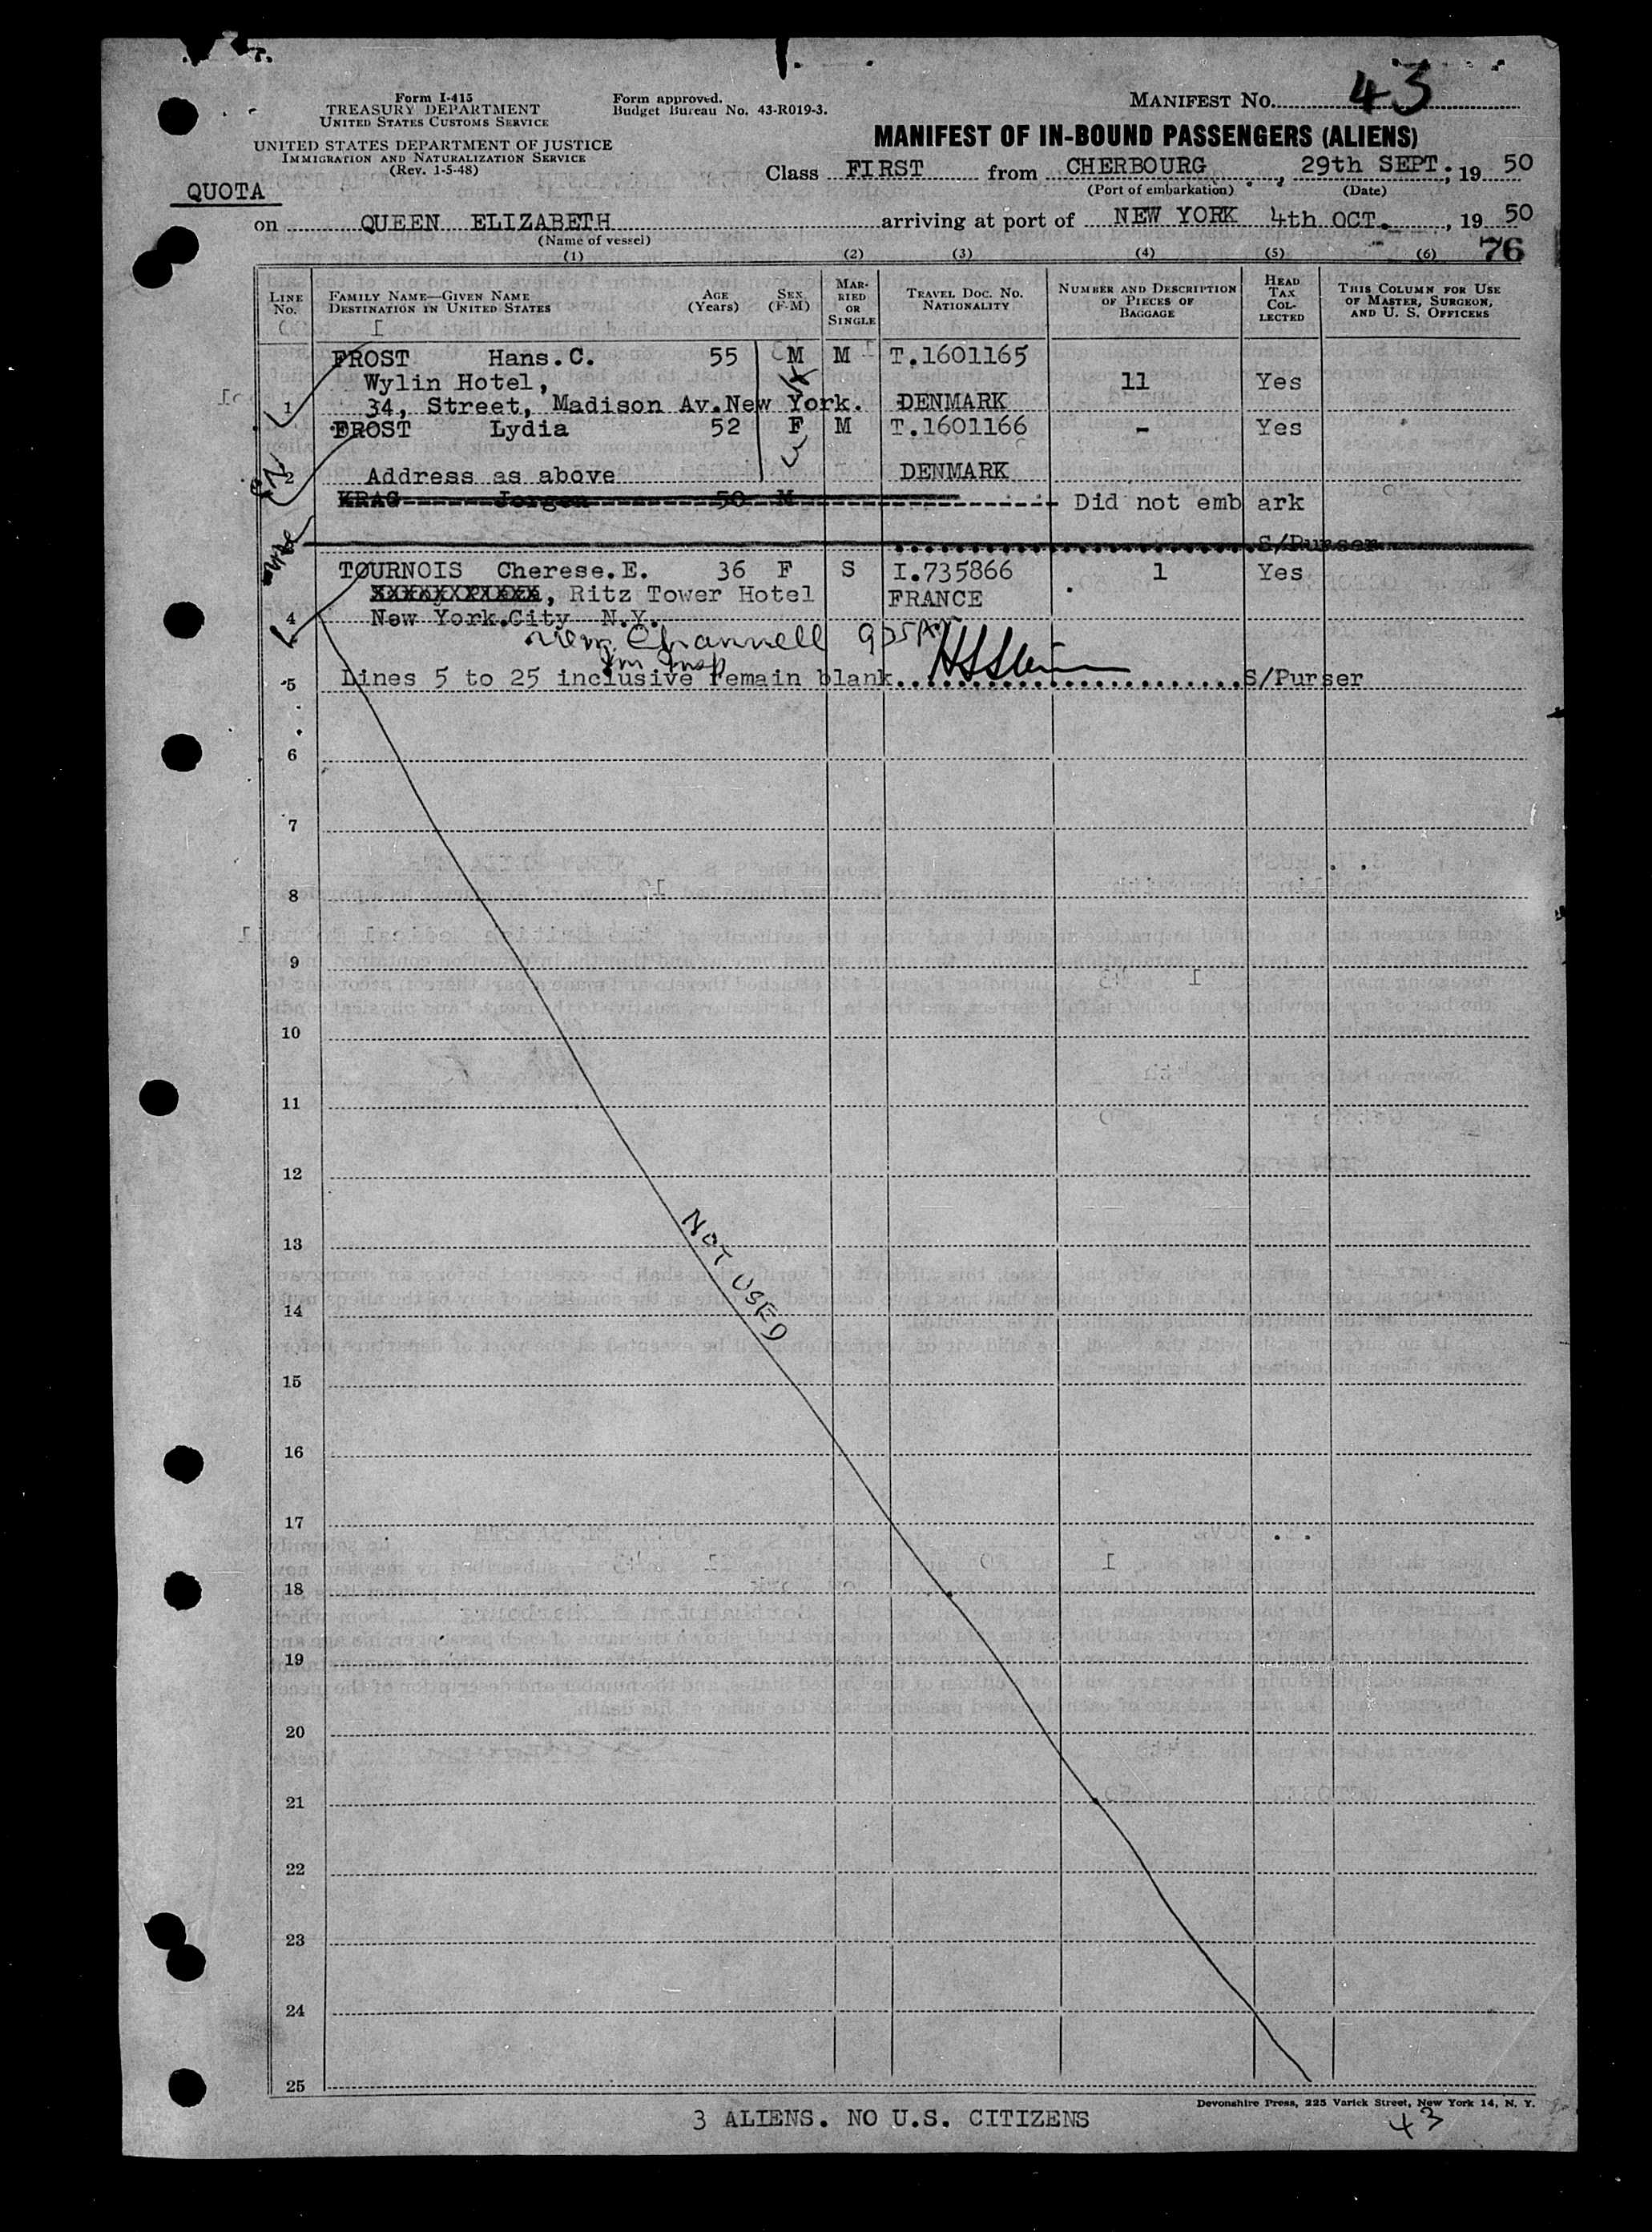 Form I-415
TREASURY DEPARTMENT
UNITED STATES CUSTOMS SERVICE
UNITED STATES DEPARTMENT OF JUSTICE
IMMIGRATION AND NATURALIZATION SERVICE
(Rev. 1-5-48)
QUOTA
Form approved.
Budget Bureau No. 43-R019-3.
MANIFEST No. 43
MANIFEST OF IN-BOUND PASSENGERS (ALIENS)
Class FIRST from CHERBOURG, 29th SEPT., 19 50
(Port of embarkation) (Date)
on QUEEN ELIZABETH arriving at port of NEW YORK 4th OCT., 19 50
(Name of vessel)
76
(1) (2) (3) (4) (5) (6)
LINE No. FAMILY NAME—GIVEN NAME DESTINATION IN UNITED STATES AGE (Years) SEX (F-M) MARRIED OR SINGLE TRAVEL DOC. NO. NATIONALITY NUMBER AND DESCRIPTION OF PIECES OF BAGGAGE HEAD TAX COLLECTED THIS COLUMN FOR USE OF MASTER, SURGEON, AND U. S. OFFICERS
FROST Hans.C. 55 M M T.1601165
Wylin Hotel, 11 Yes
1 34, Street, Madison Av.New York. DENMARK
FROST Lydia 52 F M T.1601166 - Yes
2 Address as above DENMARK
KRAG Jorgen 50 M Did not embark
S/Purser
TOURNOIS Cherese.E. 36 F S I.735866 1 Yes
, Ritz Tower Hotel FRANCE
4 New York.City N.Y.
Channell
Im Insp
5 Lines 5 to 25 inclusive remain blank. S/Purser
6
7
8
9
10
11
12
NOT USED
13
14
15
16
17
18
19
20
21
22
23
24
25
Devonshire Press, 225 Varick Street, New York 14, N. Y.
3 ALIENS. NO U.S. CITIZENS
43